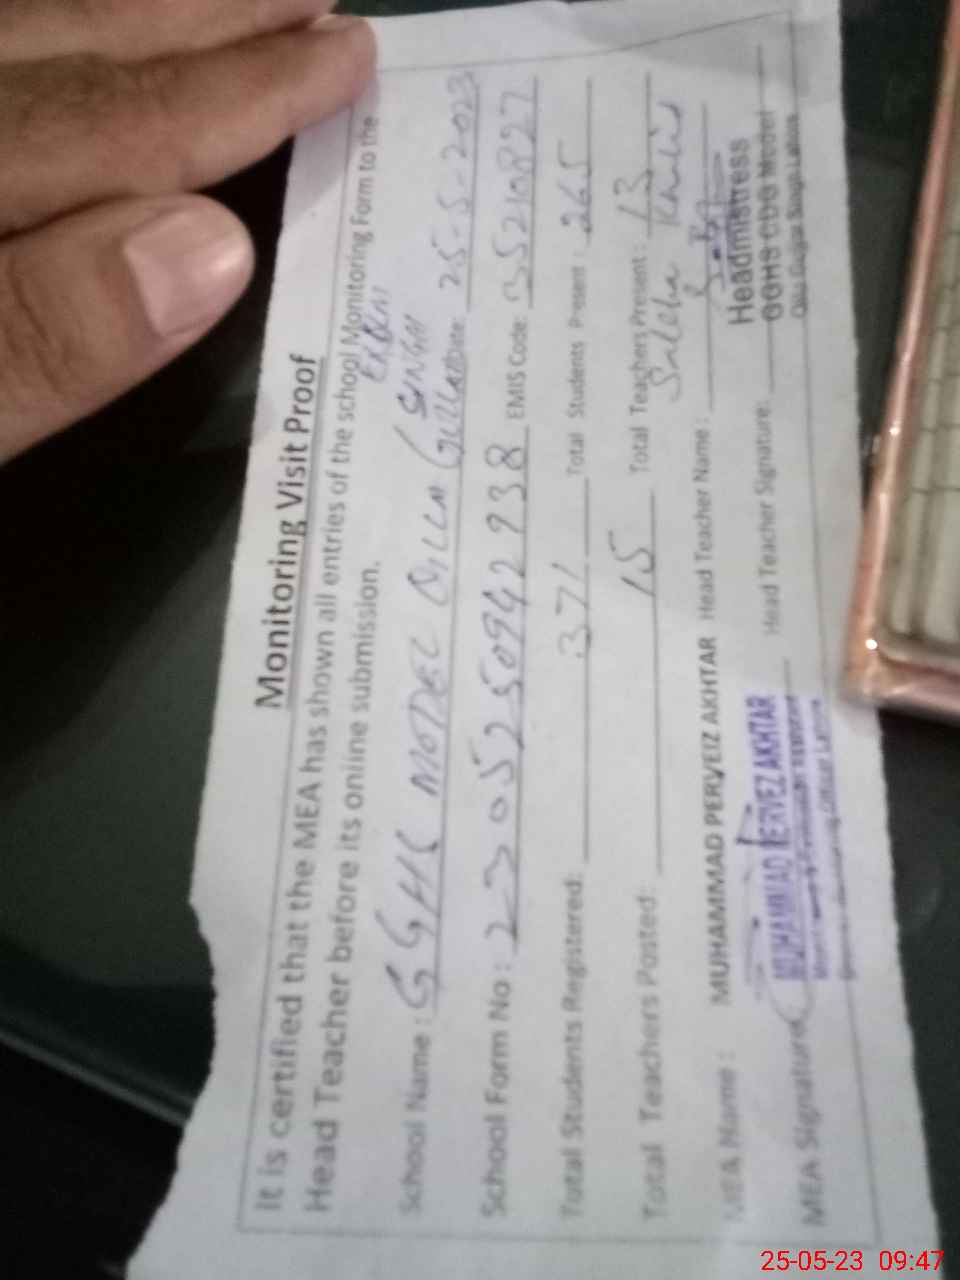 Monitoring Visit Proof
It is certified that the MEA has shown all entries of the school Monitoring Form to the
Head Teacher before its online submission.
School Name : GGHS MODEL QILLA GUJJAR SINGH Date: 25-5-2023
School Form No : 23052509942938 EMIS Code: 35210827
Total Students Registered: 371 Total Students Present : 265
Total Teachers Posted: 15 Total Teachers Present : 13
MEA Name : MUHAMMAD PERVEIZ AKHTAR Head Teacher Name :
MEA Signature Head Teacher Signature:
MUHAMMAD PERVEZ AKHTAR
Headmistress
GGHS CDG Model
Qila Gujjar Singh Lahore
25-05-23 09:47